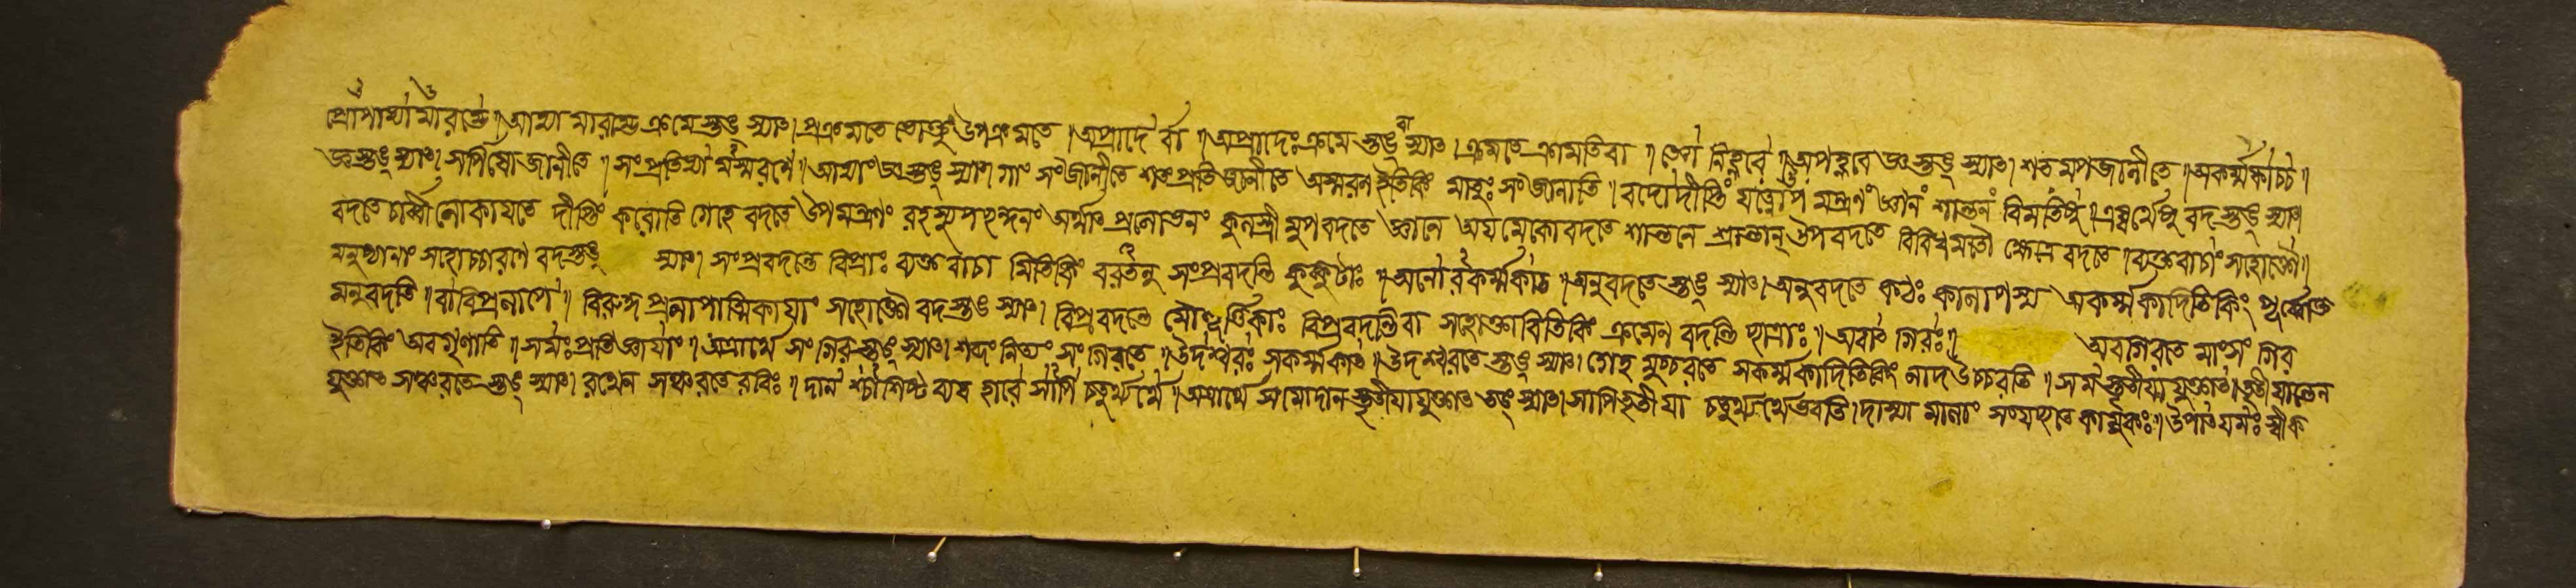 প্রোপাভ্যামারম্ভে৷ আভ্যামারম্ভে ক্রমেস্তঙ্ স্যাৎ৷ প্রক্রমতে ভোক্তুং উপক্রমতে ৷ অপ্রাদের্বা ৷ অপ্রাদেঃ ক্রমেস্তঙ্ বা স্যাৎ৷ ক্রমতে ক্রামতি বা ৷ জ্ঞো নিহ্নবে ৷ অপহ্নবে
জ্ঞস্তঙ্ স্যাৎ৷ সর্পিষো জানীতে ৷ সংপ্রতিভ্যামস্মরণে৷ আভ্যাং জ্ঞস্তঙ্ স্যাৎ৷ গাং সংজানীতে শতং প্রতিজানীতে অস্মরণ ইতি কিং মাতুঃ সংজানাতি ৷ শতমপজানীতে ৷ অকর্ম্মকাচ্চ ৷
বদো দীপ্তি যত্নোপমন্ত্রণ জ্ঞান শান্তন বিমতিষু৷ এষ্বর্থেষু বদস্তঙ্ স্যাৎ৷
বদতে চার্ব্বী লোকায়তে দীপ্তিং করোতি গেহে বদতে উপমন্ত্রণং রহস্যুপচ্ছন্দনং অর্থাৎ প্রলোভনং কুলস্ত্রী মুপবদতে জ্ঞানে অয়মেকো বদতে শান্তনে উপবদতে বিবিধমতৌ ক্ষেত্রে বদতে ৷ ব্যক্তবাচাং সহোক্তৌ৷
মনুষ্যানাং সহোচ্চারণে বদস্তঙ্ স্যাৎ৷ সংপ্রবদন্তে বিপ্রাঃ ব্যক্তবাচামিতি কিং বরতনু সংপ্রবদন্তি কুক্কুটাঃ ৷ অনোরকর্ম্মকাৎ ৷ অনুবদতেস্তঙ্ স্যাৎ৷ অনুবদতে কঠঃ কালাপস্য অকর্ম্মকাদিতি কিং পূর্ব্বোক্ত
মনুবদতি ৷ বা বিপ্রলাপে ৷ বিরুদ্ধ প্রলাপাত্মিকায়াং সহোক্তৌ বদস্তঙ্ স্যাৎ৷ বিপ্রবদন্তে মৌহূর্ত্তিকাঃ বিপ্রবদন্তি বা সহোক্তাবিতি কিং ক্রমেণ বদন্তি ছাত্রাঃ ৷ অবাৎ গিরঃ ৷ অবগিরতে মাংসং গির
ইতি কিং অবগৃণাতি ৷ সমঃ প্রতিজ্ঞায়াং ৷ অত্রার্থে সংগিরস্তঙ্ স্যাৎ৷ শব্দং নিত্যং সংগিরতে ৷ উদশ্চরঃ সকর্ম্মকাৎ ৷ উদশ্চরতেস্তঙ্ স্যাৎ৷ গেহমুচ্চরতে সকর্ম্মকাদিতি কিং নাদ উচ্চরতি ৷ সমস্তৃতীয়াযুক্তাৎ৷ তৃতীয়ান্তেন
যুক্তাৎ সঞ্চরতেস্তঙ্ স্যাৎ৷ রথেন সঞ্চরতে রবিঃ ৷ অত্রার্থে সমোদানস্তৃতীয়াযুক্তাৎ তঙ্ স্যাৎ৷ সাপি তৃতীয়া চতুর্থ্যর্থে ভবতি৷ দাস্যা মালাং সংযচ্ছতে কামুকঃ৷ উপাৎ যমঃ স্বীক